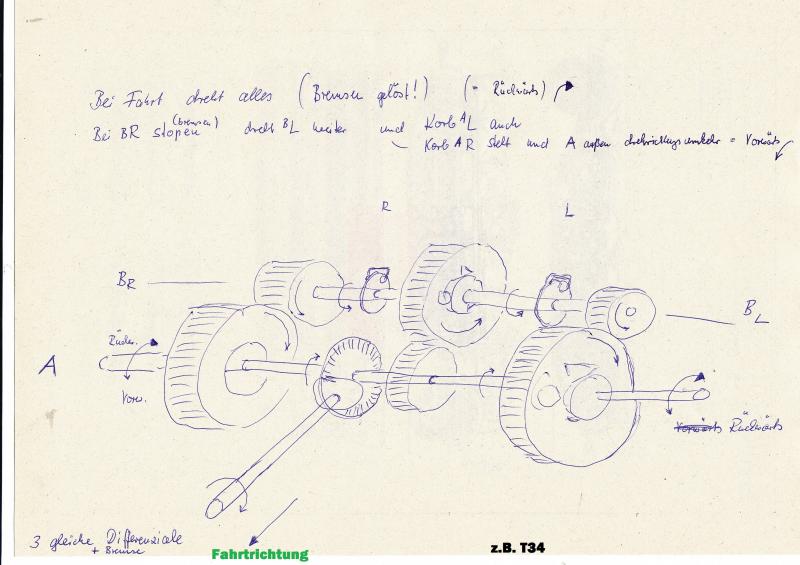 Bei Fahrt dreht alles (Bremsen gelöst!) (= Rückwärts)
Bei BR stopen (bremsen) dreht BL weiter und Korb AL auch
Korb AR steht und A außen drehrichtungsumkehr = Vorwärts
R L
BR
BL
Rückw.
A
Vorw.
Vorwärts Rückwärts
3 gleiche Differenziale
+ Bremse
Fahrtrichtung
z.B. T34